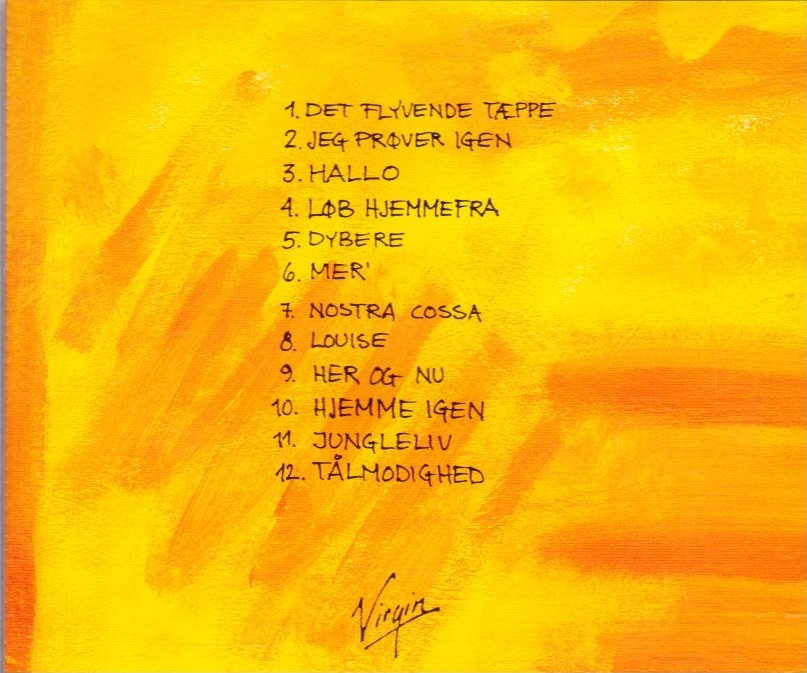 1. DET FLYVENDE TÆPPE
2. JEG PRØVER IGEN
3. HALLO
4. LØB HJEMMEFRA
5. DYBERE
6. MER'
7. NOSTRA COSSA
8. LOUISE
9. HER OG NU
10. HJEMME IGEN
11. JUNGLELIV
12. TÅLMODIGHED
Virgin